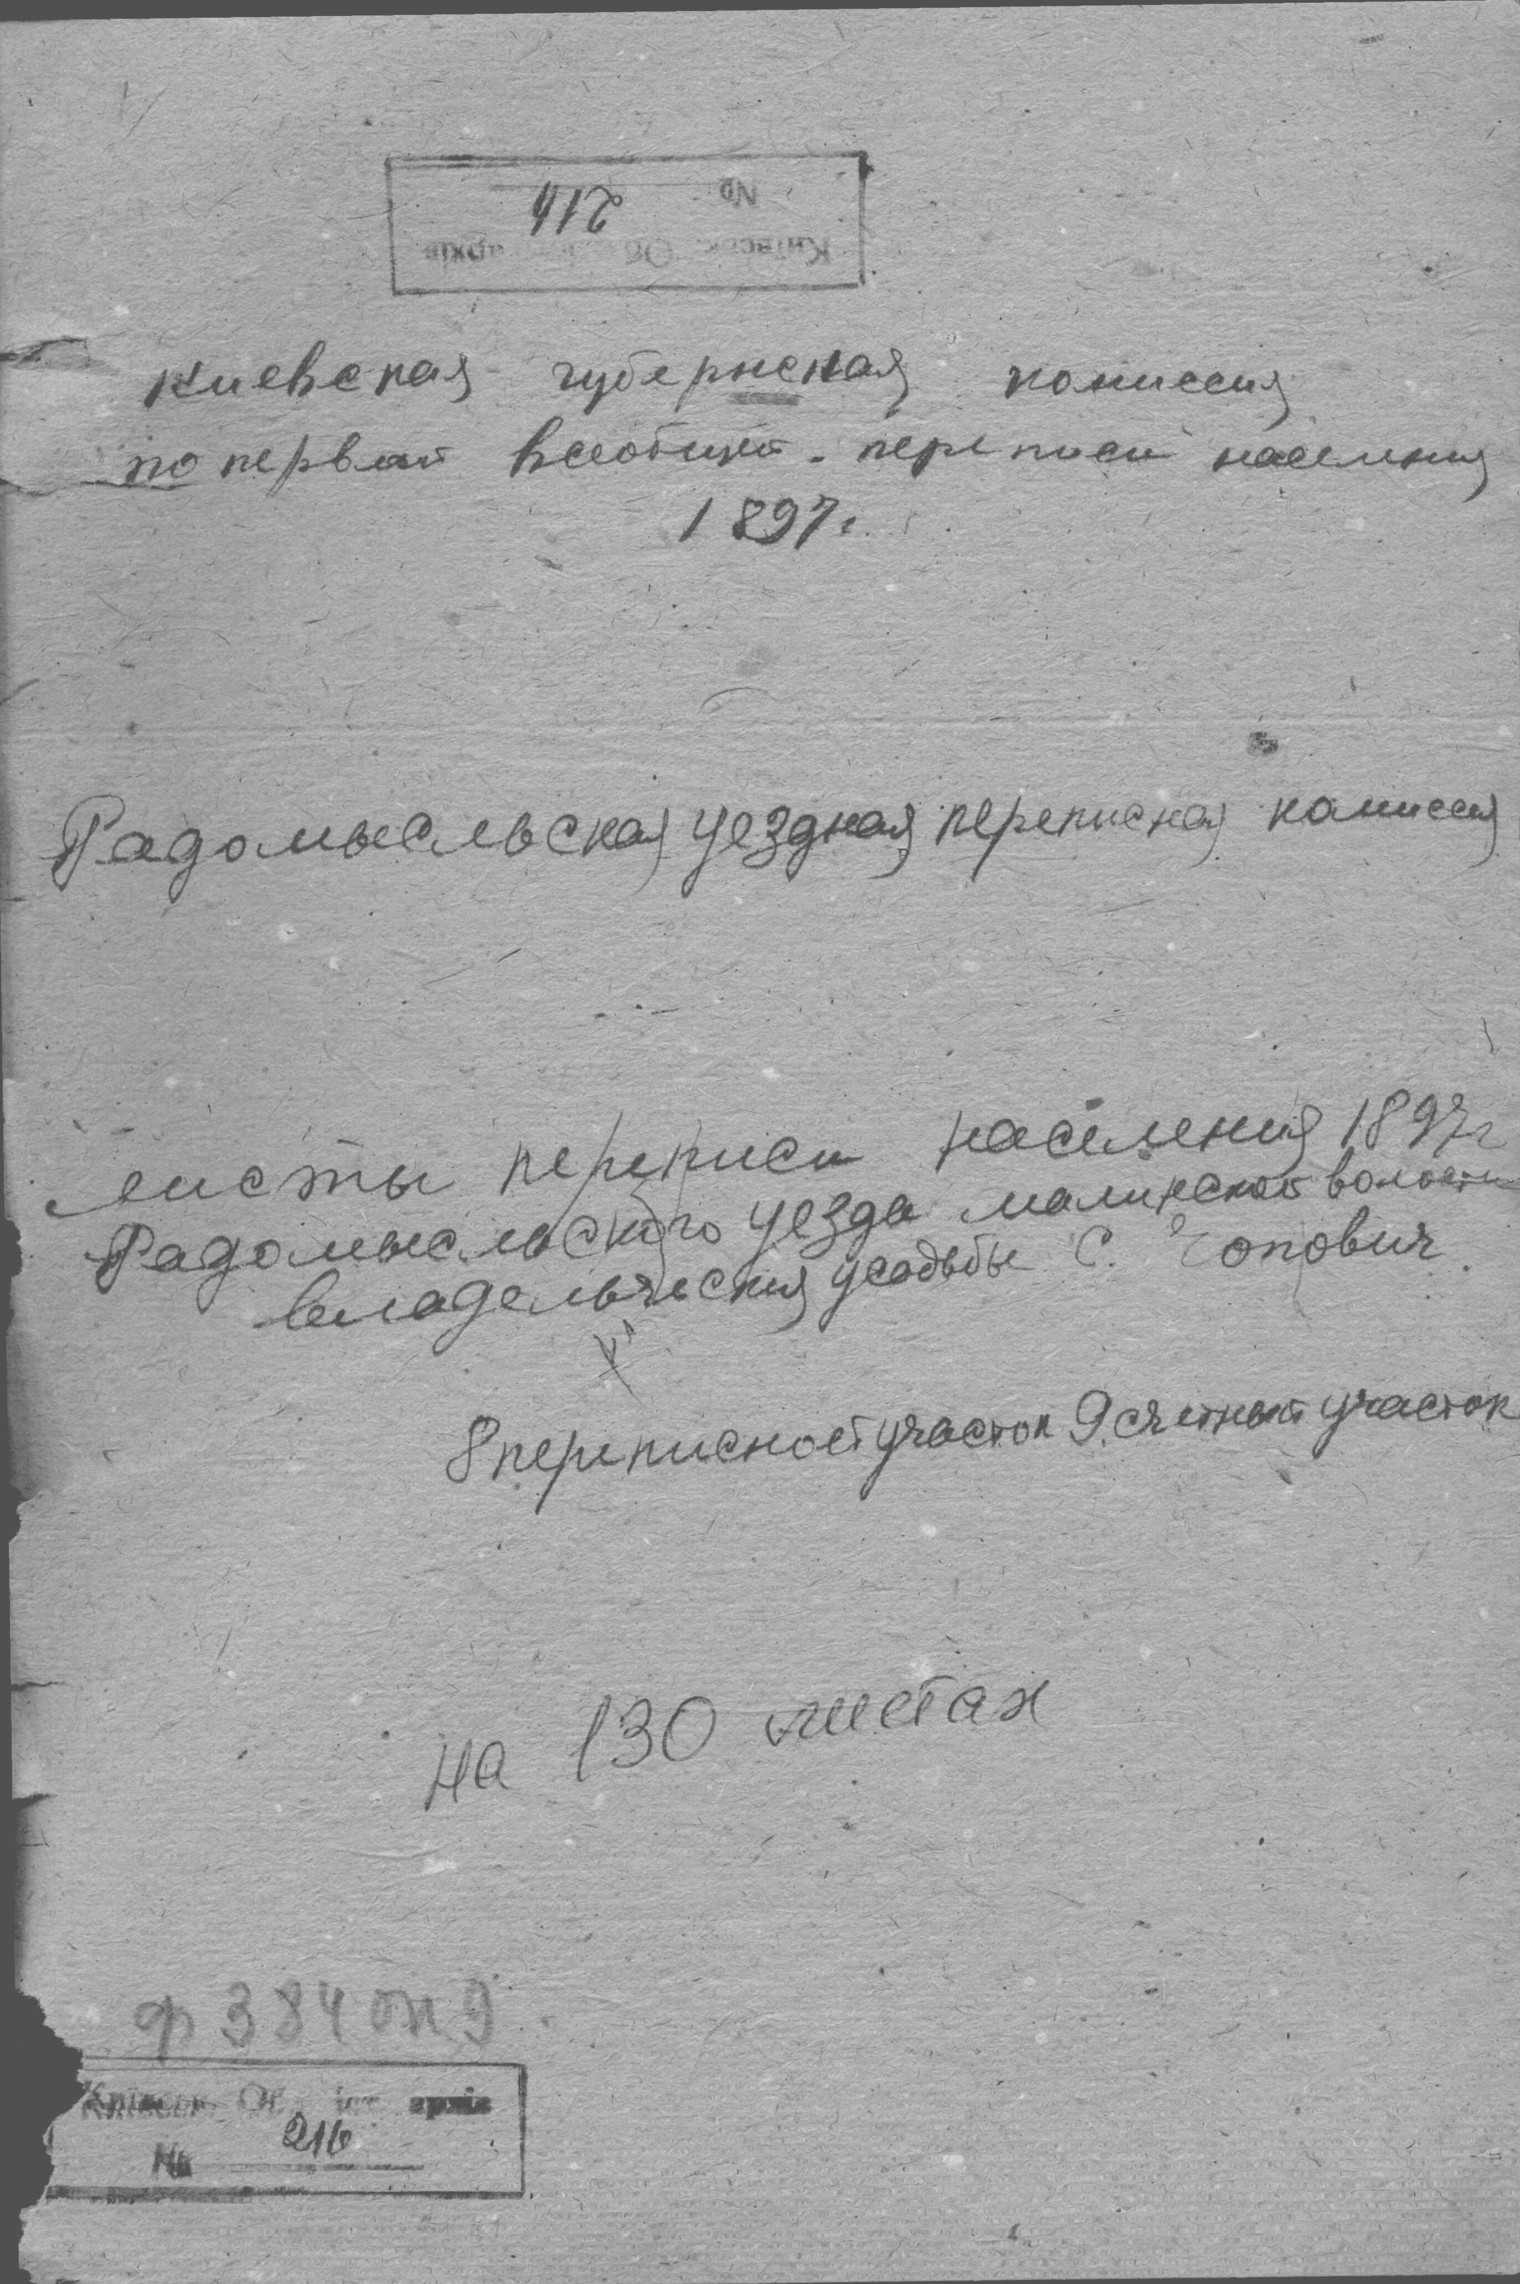 № 214
Київськ. Об архів
Киевская губернская комиссия
по первой всеобщей переписи населения
1897г.
Радомысльская уездная переписная комиссия
Листы переписи населения 1897г
Радомысльского уезда малинской волости
владельческия усадьбы с. Чопович.
8 переписной участок 9 счетный участок
на 130 листах
ф 384 оп 9
Київськ. Об. іст. архів
№ 216